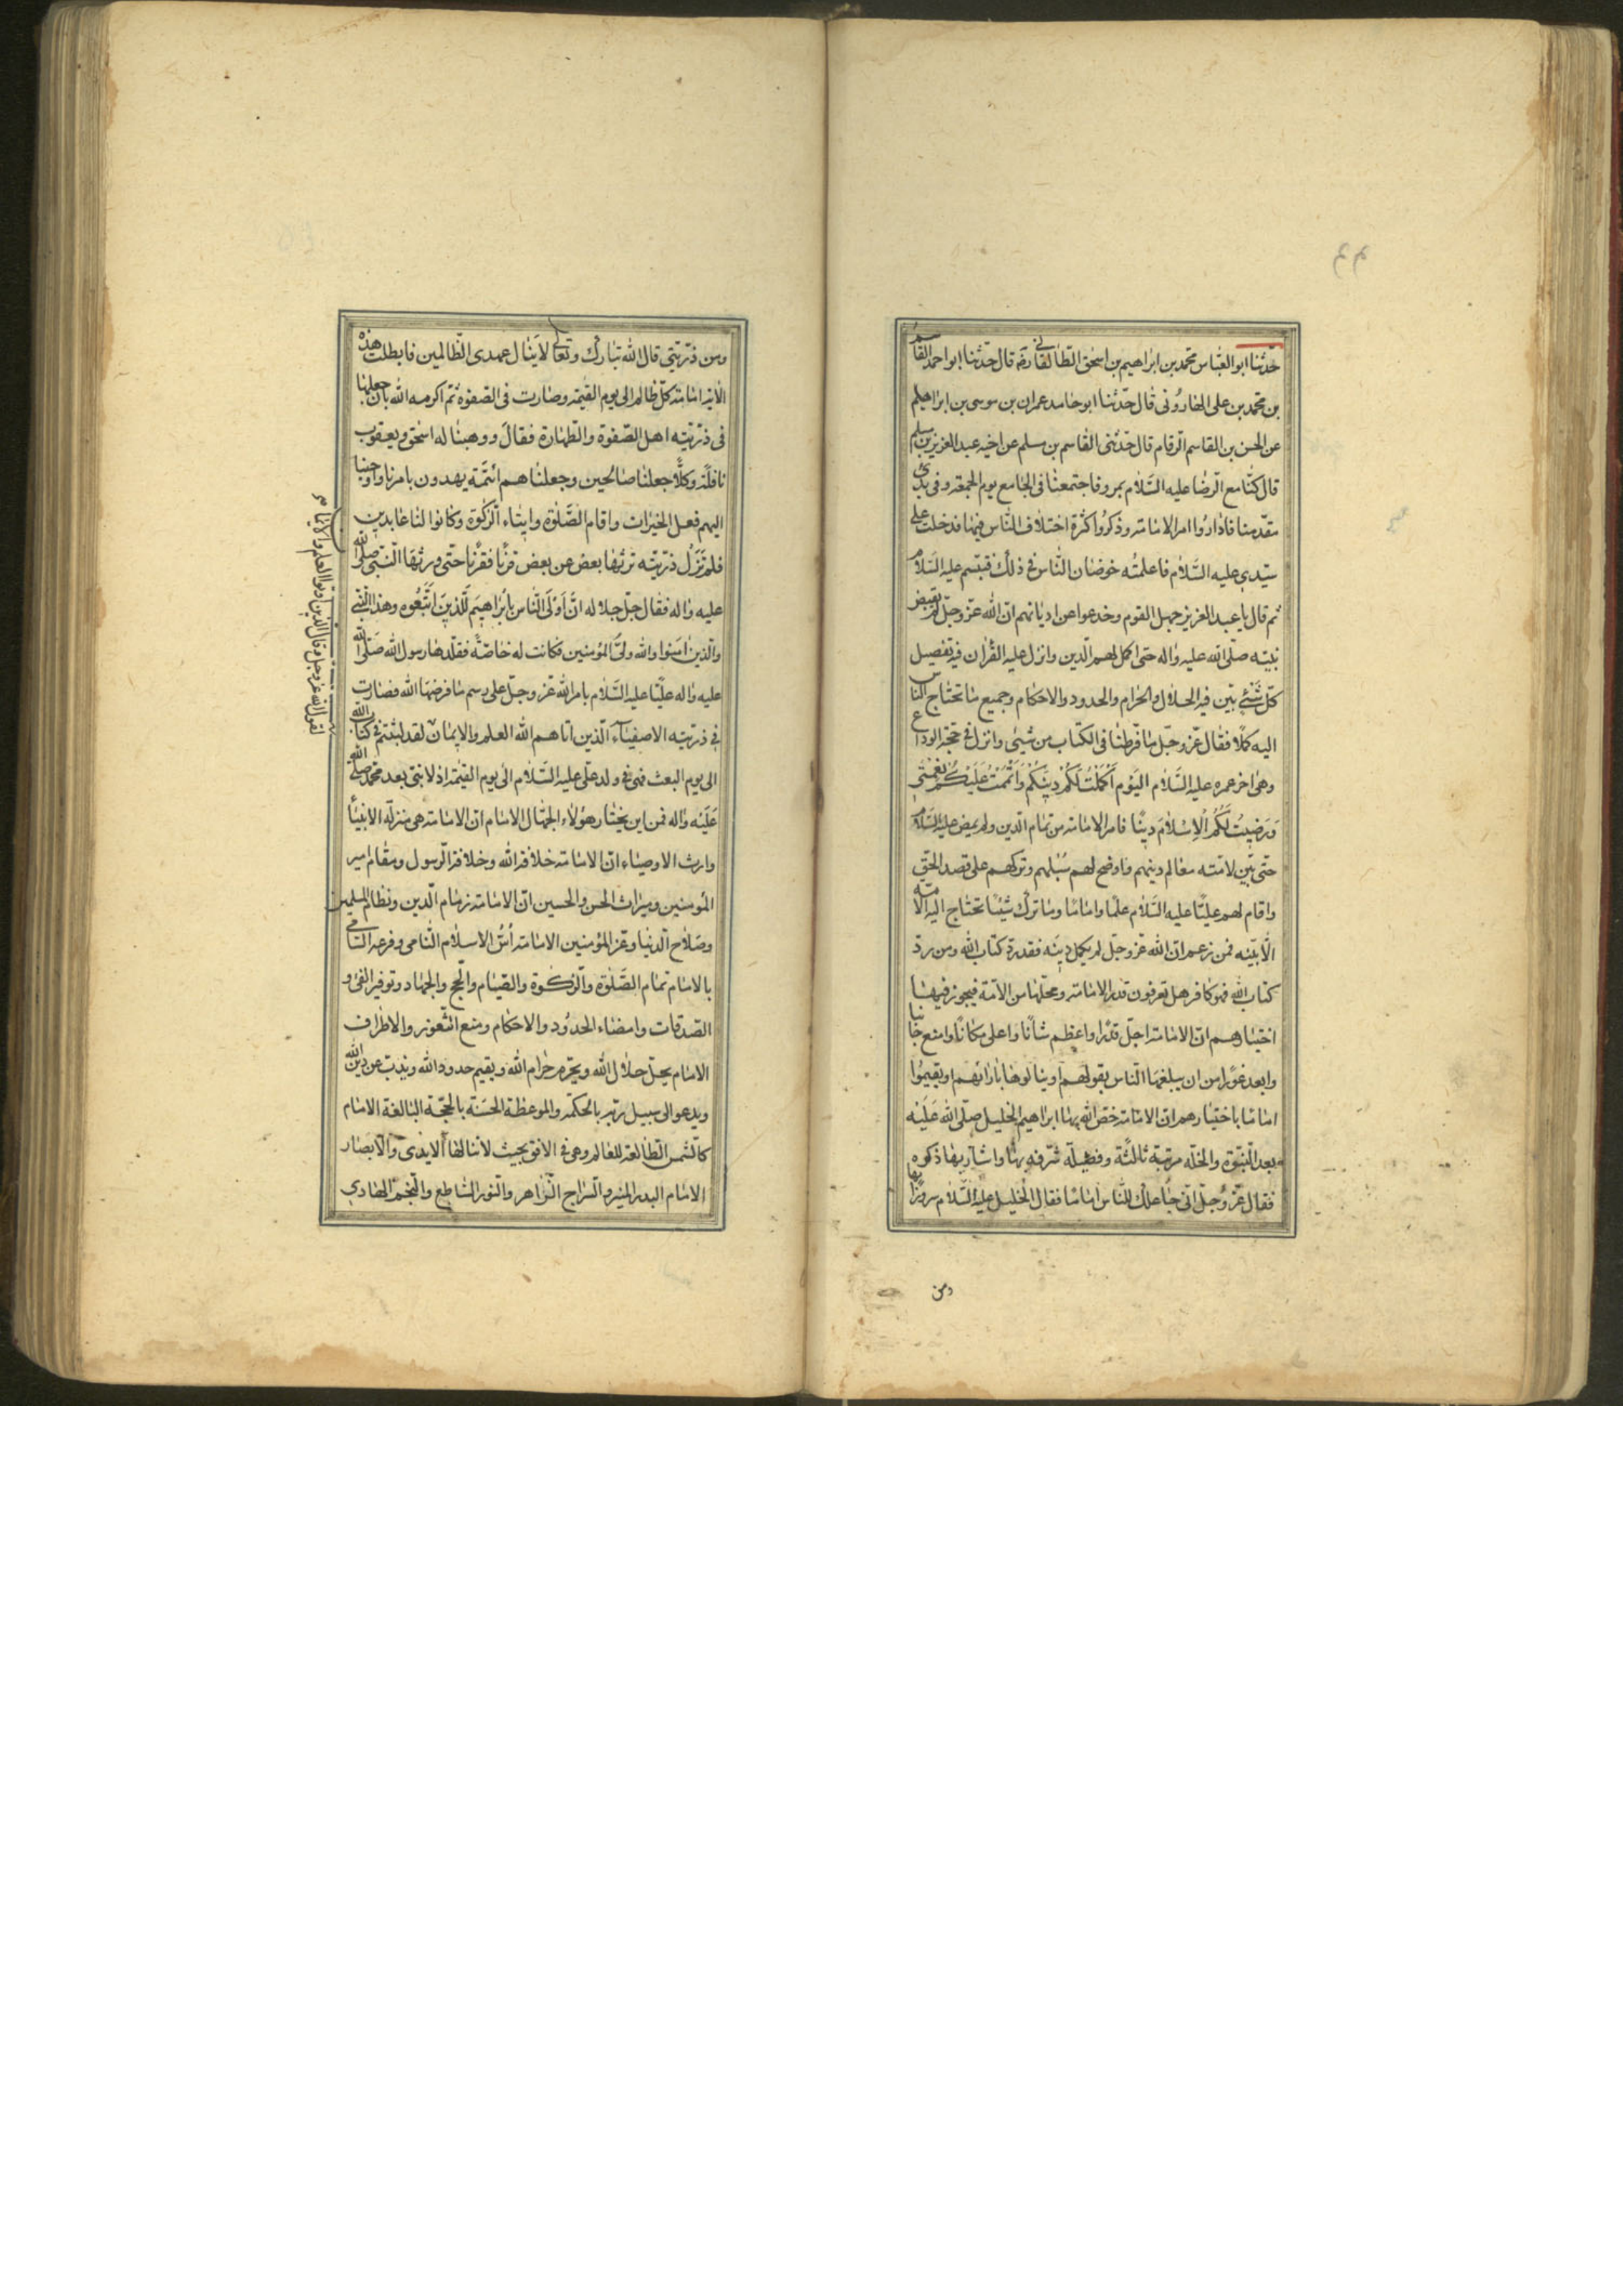 حدّثنا ابو العباس محمد بن ابراهيم بن اسحق الطالقانى رضه قال حدّثنا ابو احمد القاسم
بن محمد بن على الهارونى قال حدّثنا ابو حامد عمران بن موسى بن ابراهيم
عن الحسن بن القاسم الرقام قال حدّثنى القاسم بن مسلم عن اخيه عبد العزيز بن مسلم
قال كنّا مع الرضا عليه السّلام بمرو فاجتمعنا فى الجامع يوم الجمعة فى بدئ
مقدمنا فاداروا امر الامامة وذكروا كثرة اختلاف الناس فيها فدخلت على
سيّدى عليه السّلام فاعلمته خوضان الناس فى ذلك فتبسّم عليه السّلام
ثم قال يا عبد العزيز جهل القوم وخدعوا عن اديانهم انّ الله عزّ وجلّ لم يقبض
نبيّه صلّى الله عليه واله حتى اكمل لهم الدين وانزل عليه القران فيه تفصيل
كلّ شئ بيّن فيه الحلال والحرام والحدود والاحكام وجميع ما تحتاج الناس
اليه كملا فقال عزّ وجلّ ما فرّطنا فى الكتاب من شيئ وانزل فى حجّة الوداع
وهى اخر عمره عليه السّلام اليَوْم أكْمَلْتُ لَكُمْ دِينَكُمْ وَأتْمَمْتُ عَلَيْكُمْ نِعْمَتِي
وَرَضِيتُ لَكُمُ الْاِسْلامَ دِينًا فامر الامامة من تمام الدين ولم يمض عليه السّلام
حتى بيّن لامّته معالم دينهم واوضح لهم سبلهم وتركهم على قصد الحقّ
واقام لهم عليّا عليه السّلام علما واماما وما ترك شيئا تحتاج اليه الامّة
الّا بيّنه فمن زعم انّ الله عزّ وجلّ لم يكمل دينه فقد ردّ كتاب الله ومن ردّ
كتاب الله فهو كافر هل تعرفون قدر الامامة ومحلّها من الامّة فيجوز فيها
اختيارهم انّ الامامة اجلّ قدرا واعظم شأنا واعلى مكانا وامنع جانبا
وابعد غورا من ان يبلغها الناس بقولهم او ينالوها بارائهم او يقيموا
اماما باختيارهم انّ الامامة خصّ الله بها ابراهيم الخليل صلّى الله عَليْه
بعد النبوّة والخلّة مرتبة ثالثة وفضيلة شرّفه بها واشار بها ذكره
فقال عزّ وجلّ انّى جاعلك للناس اماما فقال الخليل عليه السّلام سرورا بها
ومن
ومن ذرّيّتى قال الله تبارك وتعالى لا ينال عهدى الظّالمين فابطلت هذه
الاية امامة كلّ ظالم الى يوم القيمة وصارت فى الصفوة ثم اكرمه الله بان جعلها
فى ذرّيّته اهل الصّفوة والطهارة فقال ووهبنا له اسحق ويعقوب
نافلة وكلّا جعلنا صالحين وجعلناهم ائمّة يهدون بامرنا واوحينا
اليهم فعل الخيرات واقام الصّلوة وايتاء الزكوة وكانوا لنا عابدين
فلم تزل ذرّيّته ترثها بعض عن بعض قرنا فقرنا حتى ورثها النّبى صلى الله
عليه واله فقال جلّ جلاله انّ أوْلَى النّاس بابْراهيم لَلّذينَ اتَّبَعُوه وهذا النّبى
والّذين امنوا والله ولىّ المؤمنين فكانت له خاصّة فقلّدها رسول الله صلى الله
عليه واله عليّا عليه السّلام بامر الله عزّ وجلّ على رسم ما فرضها الله فصارت
فى ذرّيّته الاصفياء الّذين اتاهم الله العلم والايمان لقد لبثتم فى كتاب الله
الى يوم البعث فهى فى ولد على عليه السّلام الى يوم القيمة اذ لا نبى بعد محمد صلى الله
عَليْه واله فمن اين يختار هؤلاء الجهّال الامام انّ الامامة هى منزلة الانبيا
وارث الاوصياء انّ الامامة خلافة الله وخلافة الرسول ومقام امير
المؤمنين وميراث الحسن والحسين انّ الامامة زمام الدين ونظام المسلمين
وصلاح الدنيا وعزّ المؤمنين الامامة اسّ الاسلام النامى وفرعه السامى
بالامام تمام الصّلوة والزكوة والصّيام والحج والجهاد وتوفير الفئ و
الصدقات وامضاء الحدود والاحكام ومنع الثغور والاطراف
الامام يحلّ حلال الله ويحرّم حرام الله ويقيم حدود الله ويذبّ عن دين الله
ويدعو الى سبيل ربّه بالحكمة والموعظة الحسنة بالحجّة البالغة الامام
كالشّمس الطالعة للعالم وهى فى الافق بحيث لا تنالها الايدى والابصار
الامام البدر المنير والسّراج الزاهر والنور الساطع والنّجم الهادى
لقول الله عز وجل وقال الذين اوتوا العلم والايمان